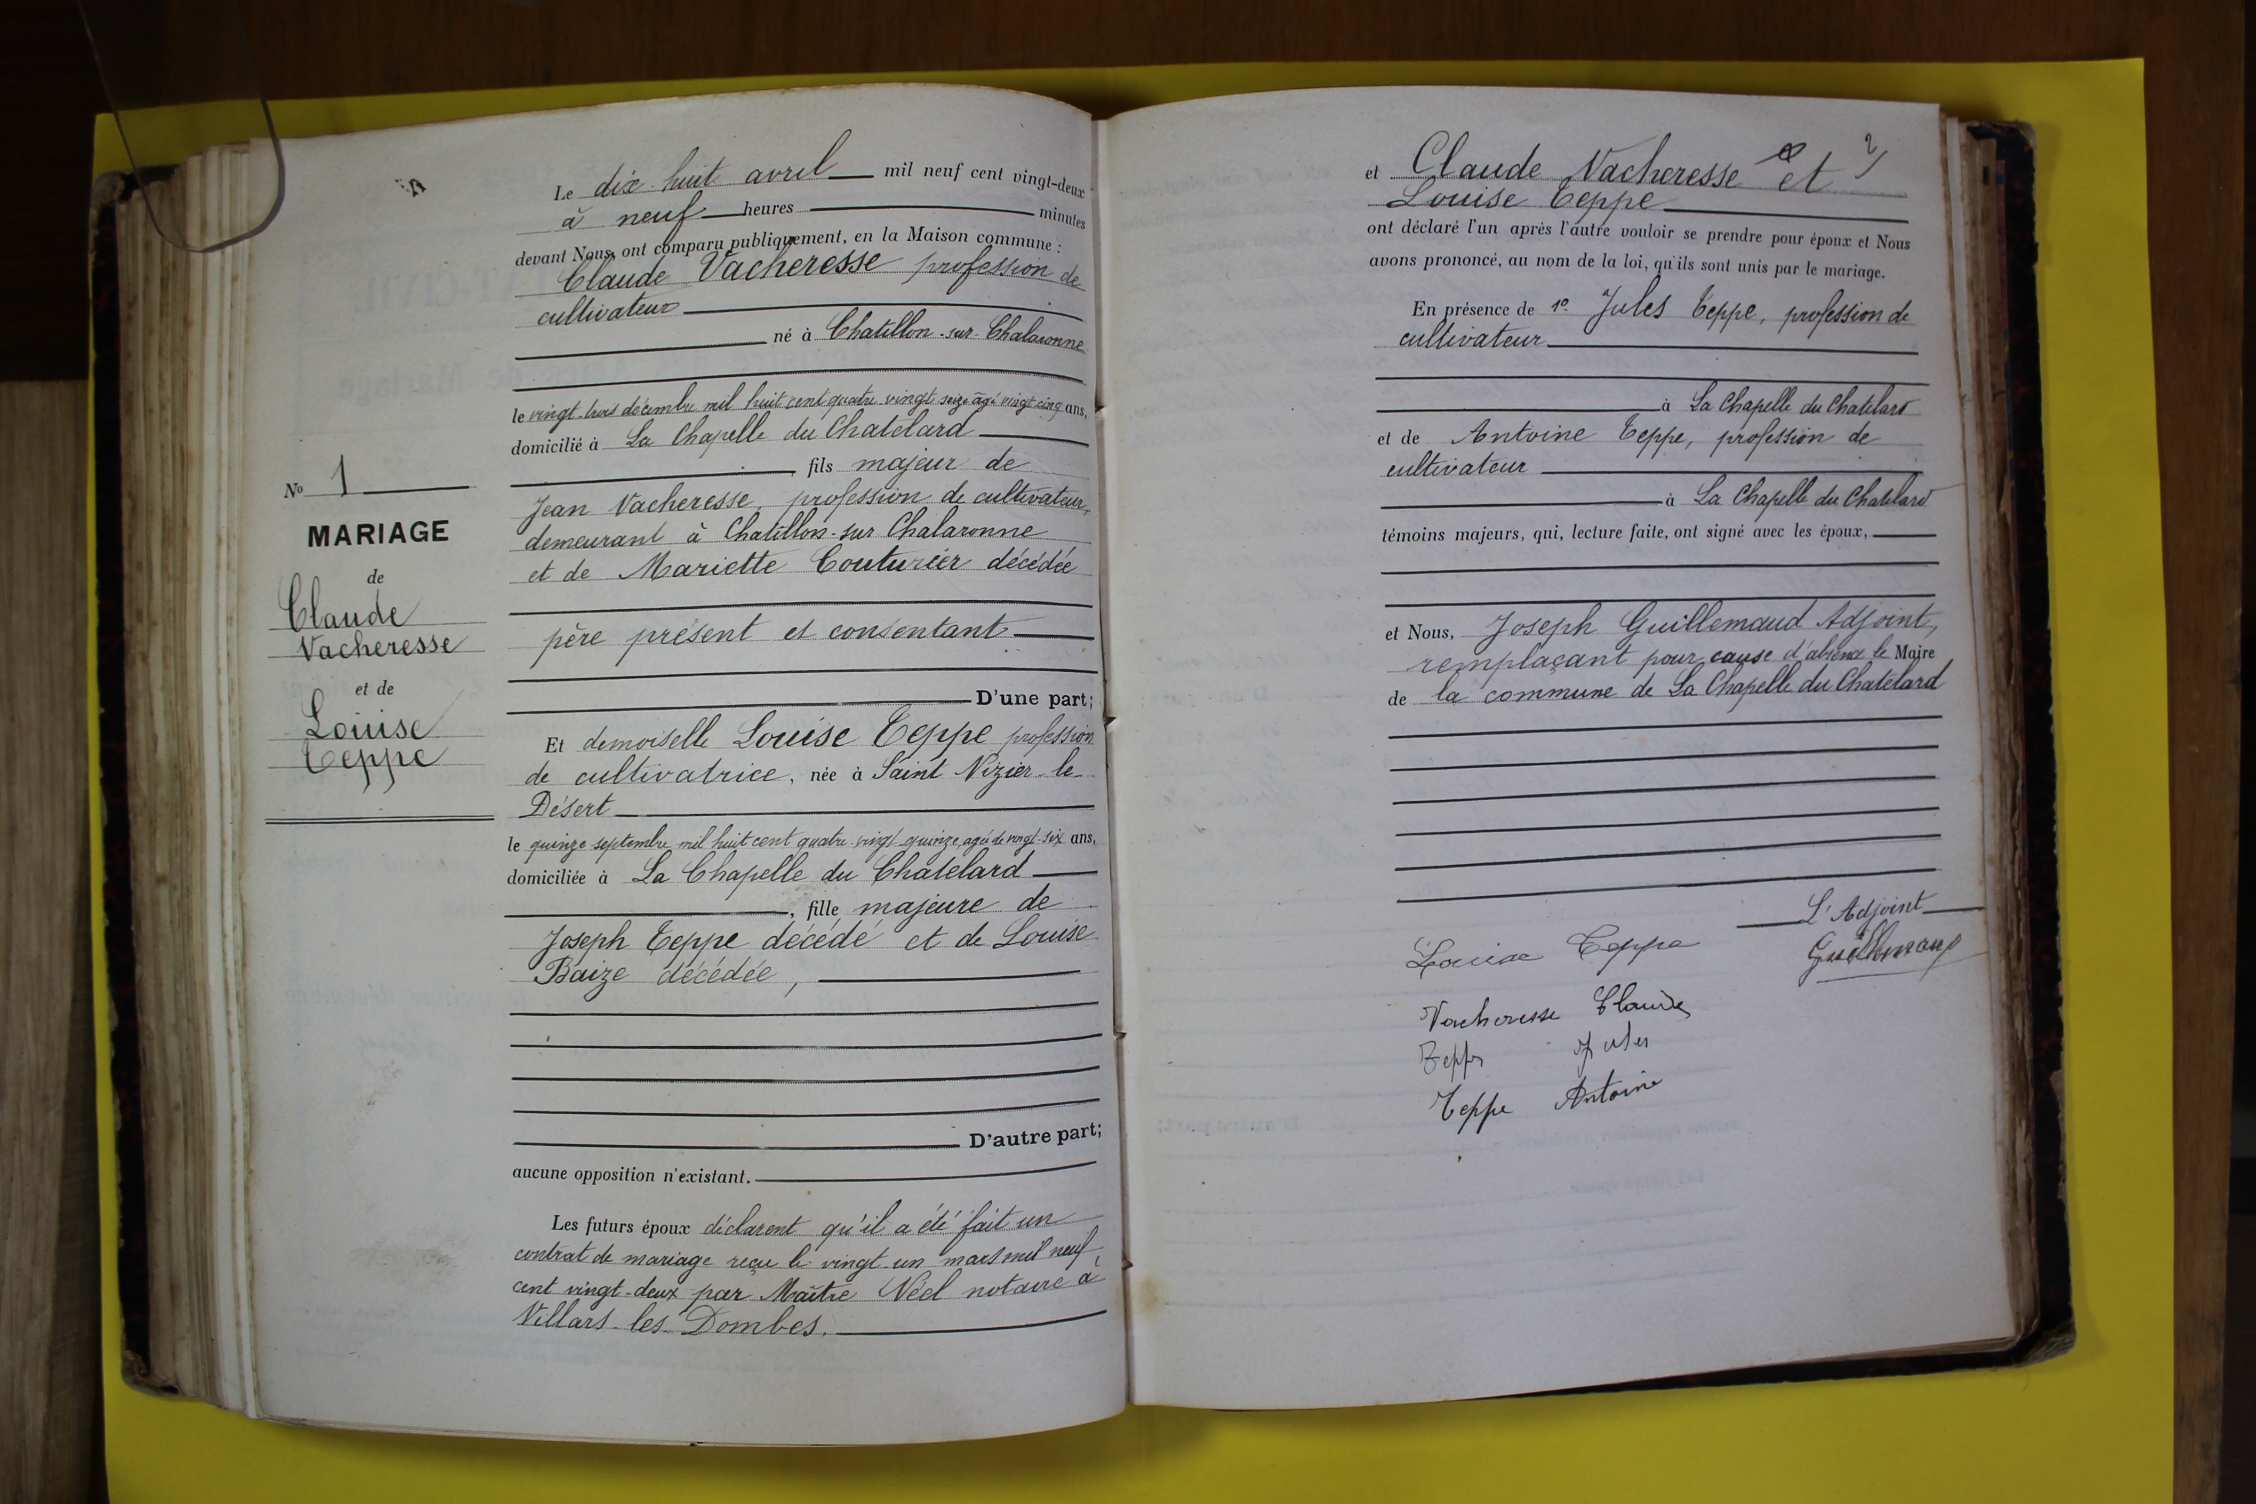 N° 1
MARIAGE
de
Claude
Vacheresse
et de
Louise
Teppe
Le dix huit avril mil neuf cent vingt-deux
à neuf heures minutes
devant Nous, ont comparu publiquement, en la Maison commune :
Claude Vacheresse profession de
cultivateur
né à Chatillon-sur-Chalaronne
le vingt-trois décembre mil huit cent quatre vingt seize âgé vingt cinq ans,
domicilié à La Chapelle du Chatelard
, fils majeur de
Jean Vacheresse, profession de cultivateur,
demeurant à Chatillon-sur Chalaronne
et de Mariette Couturier décédée
père présent et consentant
D'une part;
Et demoiselle Louise Teppe profession
de cultivatrice, née à Saint Nizier le
Désert
le quinze septembre mil huit cent quatre-vingt-quinze, agée de vingt-six ans,
domiciliée à La Chapelle du Chatelard
, fille majeure de
Joseph Teppe décédé et de Louise
Baize décédée,
D'autre part;
aucune opposition n'existant.
Les futurs époux déclarent qu'il a été fait un
contrat de mariage reçu le vingt-un mars mil neuf
cent vingt-deux par Maître Néel notaire à
Villars-les-Dombes.
2
et Claude Vacheresse et
Louise Teppe
ont déclaré l'un après l'autre vouloir se prendre pour époux et Nous
avons prononcé, au nom de la loi, qu'ils sont unis par le mariage.
En présence de 1° Jules Teppe, profession de
cultivateur
à La Chapelle du Chatelard
et de Antoine Teppe, profession de
cultivateur
à La Chapelle du Chatelard
témoins majeurs, qui, lecture faite, ont signé avec les époux,
et Nous, Joseph Guillemaud Adjoint,
remplaçant pour cause d'absence le Maire
de la commune de La Chapelle du Chatelard
L'Adjoint
Louise Teppe
Guillemaud
Vacheresse Claude
Teppe Jules
Teppe Antoine